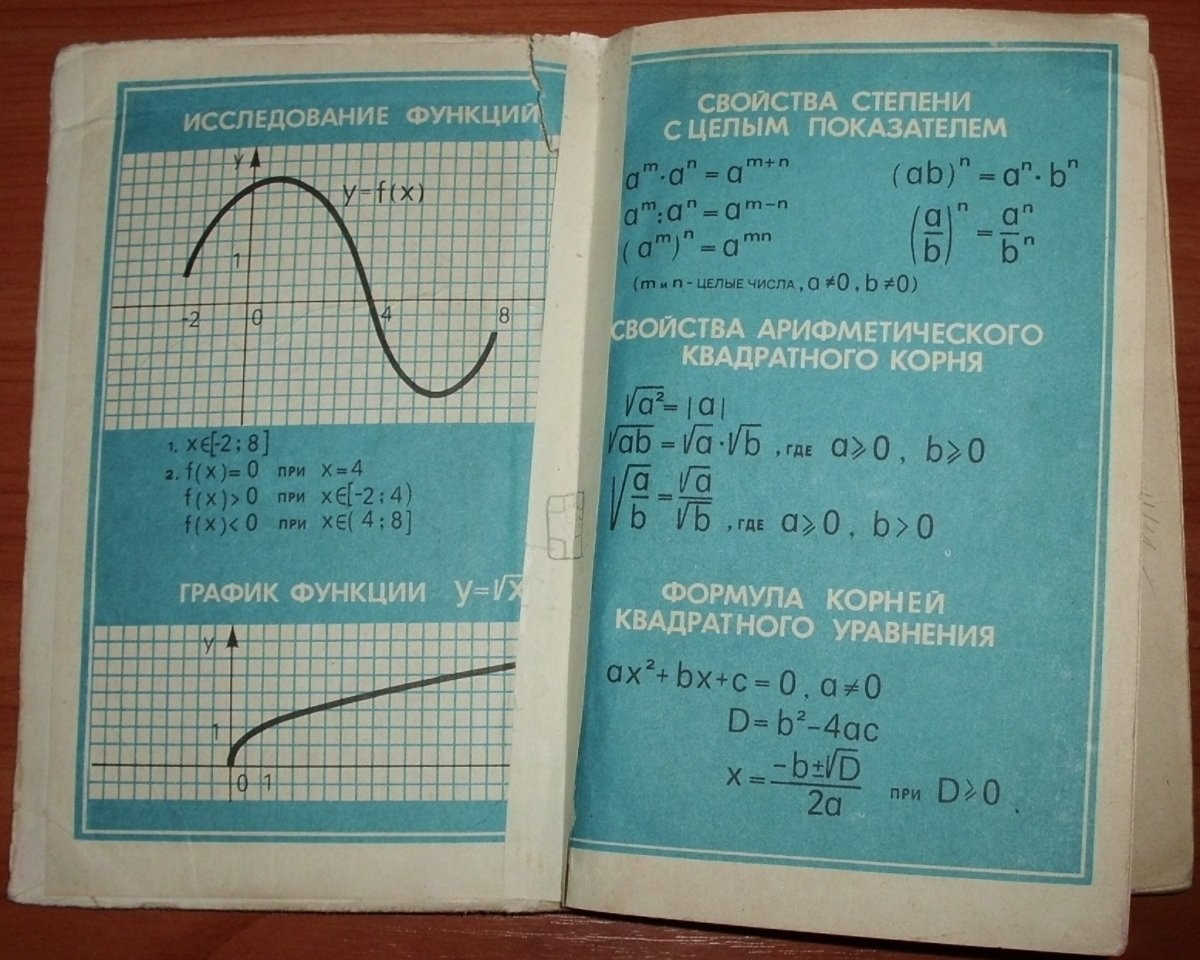 ИССЛЕДОВАНИЕ ФУНКЦИЙ
y
y=f(x)
1
-2 0 4 8
1. x∈[-2; 8]
2. f(x)=0 при x=4
f(x)>0 при x∈[-2; 4)
f(x)<0 при x∈(4; 8]
ГРАФИК ФУНКЦИИ y=√x
y
1
0 1
СВОЙСТВА СТЕПЕНИ
С ЦЕЛЫМ ПОКАЗАТЕЛЕМ
aᵐ·aⁿ = aᵐ⁺ⁿ (ab)ⁿ = aⁿ·bⁿ
aᵐ:aⁿ = aᵐ⁻ⁿ (a/b)ⁿ = aⁿ/bⁿ
(aᵐ)ⁿ = aᵐⁿ
(m и n - ЦЕЛЫЕ ЧИСЛА, a≠0, b≠0)
СВОЙСТВА АРИФМЕТИЧЕСКОГО
КВАДРАТНОГО КОРНЯ
√a² = |a|
√ab = √a·√b, где a⩾0, b⩾0
√(a/b) = √a/√b, где a⩾0, b>0
ФОРМУЛА КОРНЕЙ
КВАДРАТНОГО УРАВНЕНИЯ
ax²+bx+c=0, a≠0
D=b²-4ac
x = (-b±√D)/2a при D⩾0.